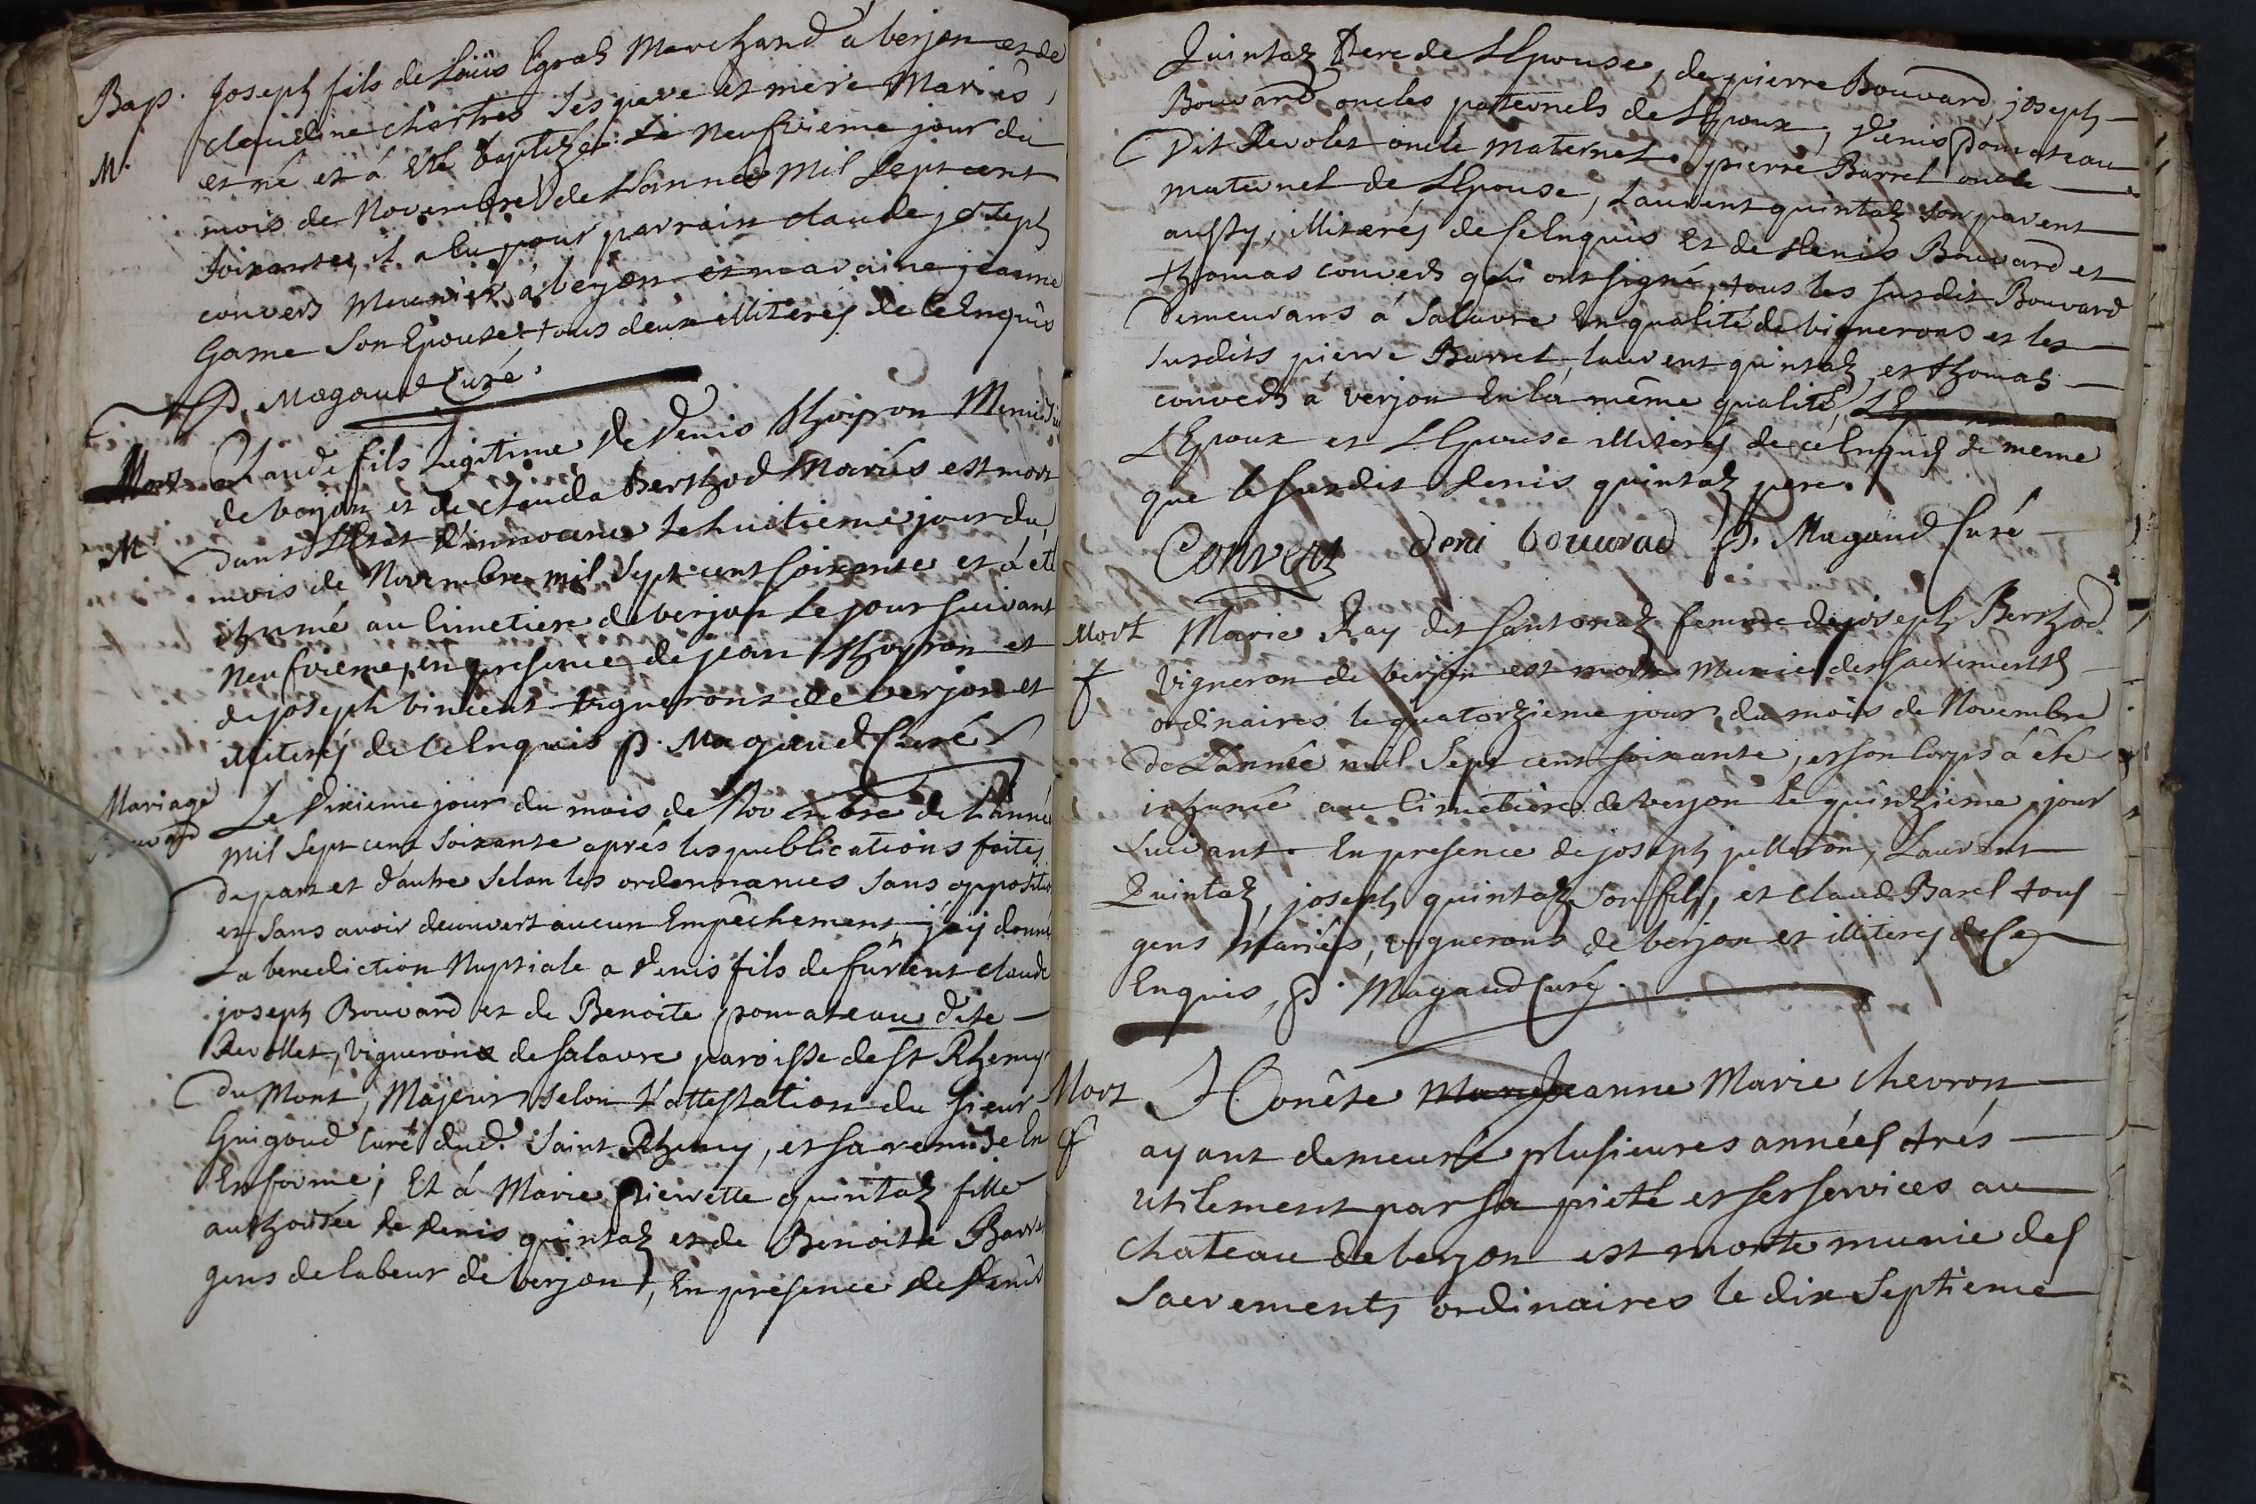 Bap. Joseph fils de Loüis Egraz Marchand à verjon et de
M. claudine chartres ses pere et mere Mariés,
est né et á été baptizé le neufvieme jour du
mois de Novembre de L'année mil sept cent
soixante, il a eu pour parrain claude joseph
convers Meunier à verjon et maraine jeanne
Game son Epouse tous deux illiterés de ce Enquis
P. Magaud Curé.
Mort Claude fils Legitime de Denis Thoiron
de verjon et de Clauda Berthod Mariés est mort
M dans L'Etat d'innocence le huitieme jour du
mois de Novembre mil sept cent soixante et à été
ihumé au Cimetiere de verjon Le jour suivant
Neufvieme, en presence de jean Thoyron et
de joseph vincent vignerons de verjon et
illiterés de ce Enquis P. Magaud Curé
Mariage Le Dixieme jour du mois de Novembre de L'année
mil sept cent soixante aprés les publications faites
de part et d'autre selon les ordonnances sans oppositio
et sans avoir decouvert aucun Empêchement, j'ay donné
La benediction Nuptiale a Denis fils de furent claude
joseph Bouvard et de Benoite pomateau dite
Revollet, vigneron de salavre paroisse de st Rhemy
du Mont, Majeur selon L'attestation du sieur
Guigoud Curé dud. Saint Rhemy, et sa remise En
En forme; Et á Marie Pierrette quintaz fille
authorisée de Denis quintaz et de Benoite Barre
gens de labeur de verjon, En presence de Denis
Quintaz Pere de L'Epouse, de pierre Bouvard, joseph
Bouvard oncles paternels de L'Epoux, Denis Pomateau
Dit Revolet oncle maternel, pierre Barrel oncle
maternel de L'Epouse, Laurent quintaz son parent
aussy, illiterés de ce Enquis Et de Denis Bouvard et
thomas convers qui ont signé, tous les susdit Bouvard
demeurans á Salavre En qualité de vignerons et les
susdits pierre Barrel, laurent quintaz, et thomas
convers á verjon En la même qualité,
L'Epoux et L'Epouse illiterés de cé Enquis de même
que le susdit Denis quintaz pere.
Convers deni bouvrad P. Magaud Curé
Mort Marie Ray dit santonaz femme de joseph Berthod
f vigneron de verjon est morte Munie des sacrements
ordinaires le quatorzieme jour du mois de Novembre
de L'année mil sept cent soixante, et son Corps á été
inhumé au Cimetiere de verjon le quinzieme jour
suivant. En presence de joseph pelleron, Laurent
Quintaz, joseph quintaz son fils, et claude Barel tous
gens Mariés, vignerons de verjon et illiterés de Ce
Enquis, P. Magaud Curé.
Mort Honête Jeanne Marie chevron
f ayant demeuré plusieures années trés
utilement par sa pieté et ses services au
chateau de verjon est morte munie des
sacrements ordinaires le dix septieme